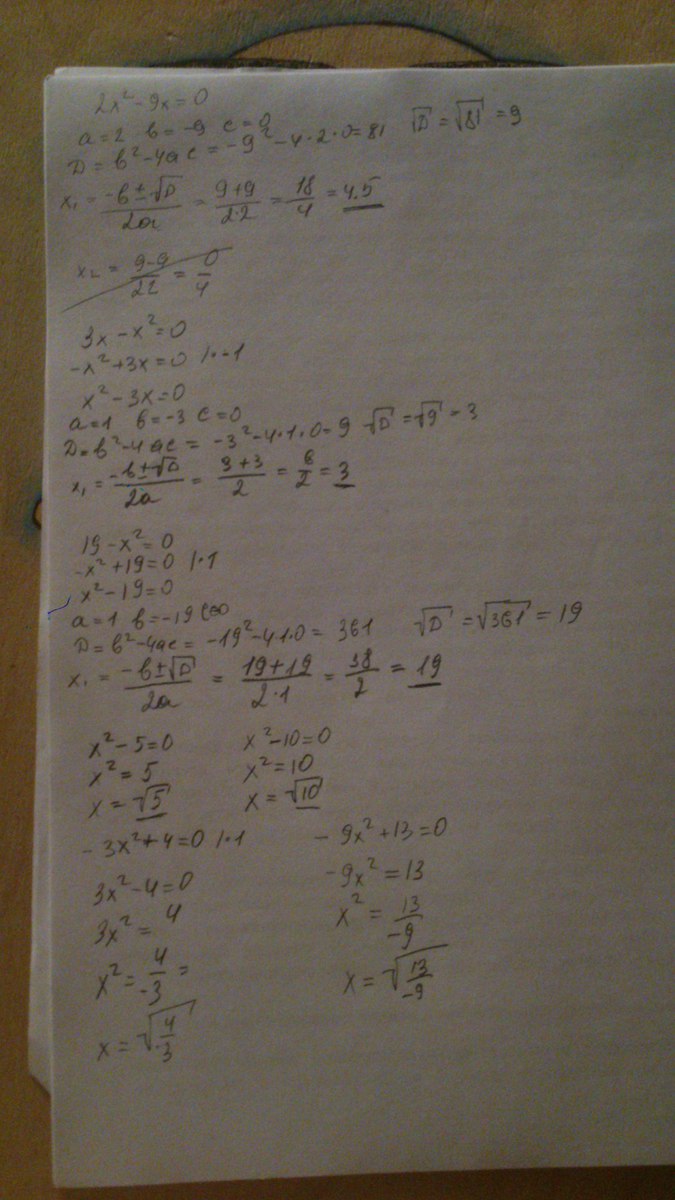 2x² - 9x = 0
a = 2 в = -9 c = 0
D = в² - 4ac = -9² - 4·2·0 = 81 √D = √81 = 9
x₁ = (-в ± √D)/2a = (9+9)/2·2 = 18/4 = 4.5
x₂ = (9-9)/22 = 0/4
3x - x² = 0
-x² + 3x = 0 |·-1
x² - 3x = 0
a = 1 в = -3 c = 0
D = в² - 4ac = -3² - 4·1·0 = 9 √D = √9 = 3
x₁ = (-в ± √D)/2a = (3+3)/2 = 6/2 = 3
19 - x² = 0
-x² + 19 = 0 |·1
x² - 19 = 0
a = 1 в = -19 c=0
D = в² - 4ac = -19² - 4·1·0 = 361 √D = √361 = 19
x₁ = (-в ± √D)/2a = (19+19)/2·1 = 38/2 = 19
x² - 5 = 0
x² = 5
x = √5
x² - 10 = 0
x² = 10
x = √10
-3x² + 4 = 0 |·1
3x² - 4 = 0
3x² = 4
x² = 4/-3 =
x = √(4/-3)
- 9x² + 13 = 0
-9x² = 13
x² = 13/-9
x = √(13/-9)